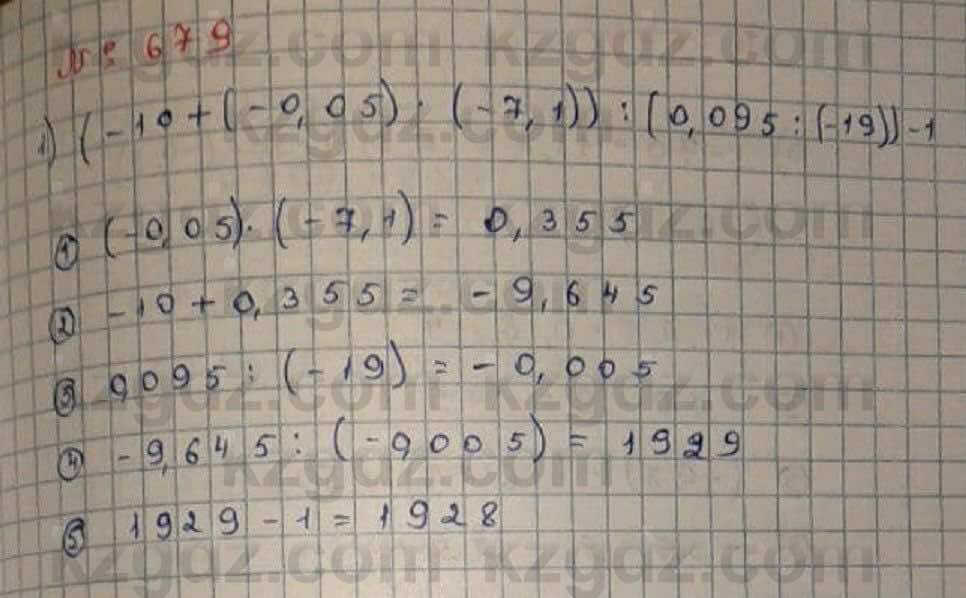 № 679
1) (-10+(-0,05)·(-7,1)):(0,095:(-19))-1
① (-0,05)·(-7,1)= 0,355
② -10+0,355= -9,645
③ 0,095:(-19)=-0,005
④ -9,645:(-0,005)=1929
⑤ 1929-1=1928
kzgdz.com kzgdz.com
kzgdz.com kzgdz.com
kzgdz.com kzgdz.com
kzgdz.com kzgdz.com
kzgdz.com kzgdz.com
kzgdz.com kzgdz.com
kzgdz.com kzgdz.com